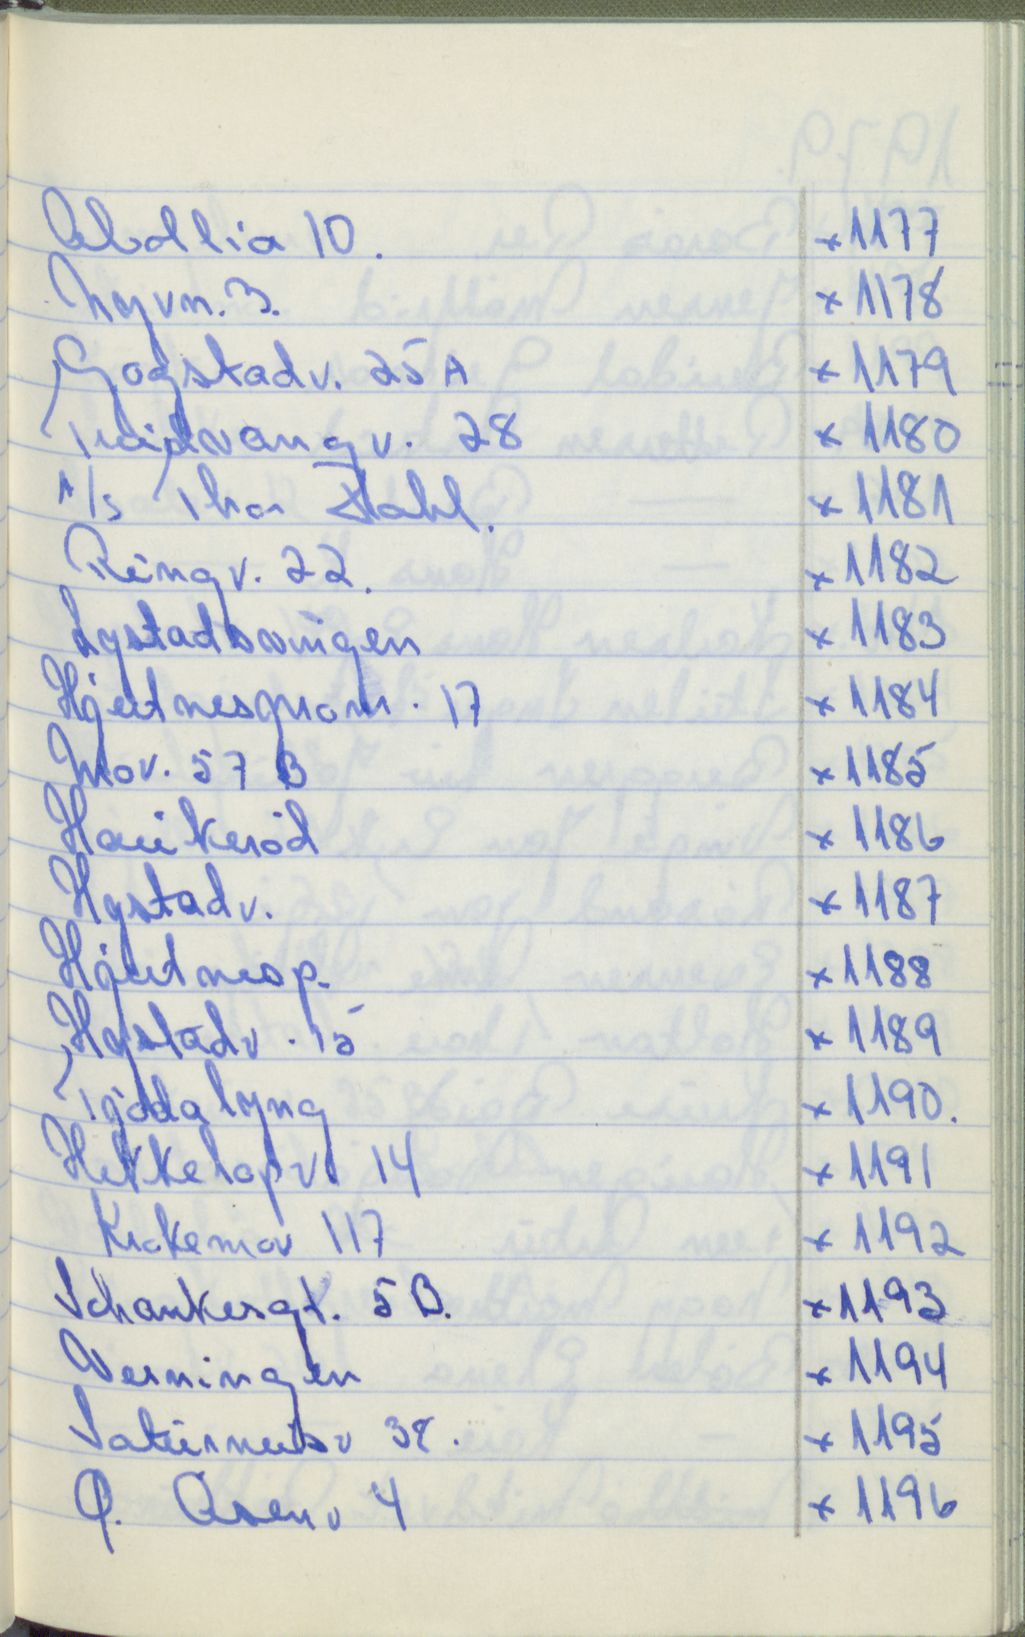 Abollia 10. x 1177
Nyvn. 3. x 1178
Gogstadv. 25 A x 1179
Tridvangv. 28 x 1180
A/s Thor Dahl. x 1181
Ringv. 22. x 1182
Lystadsvingen x 1183
Hjertnesprom. 17 x 1184
Mov. 57 B x 1185
Haukerød x 1186
Hystadv. x 1187
Hjertnesp. x 1188
Hystadv. 15 x 1189
Tjødalyng x 1190.
Hekkelopv. 14 x 1191
Krokemov 117 x 1192
Schankesgt. 5 B. x 1193
Verningen x 1194
Saturnusv 38. x 1195
Ø. Åsenv 4 x 1196